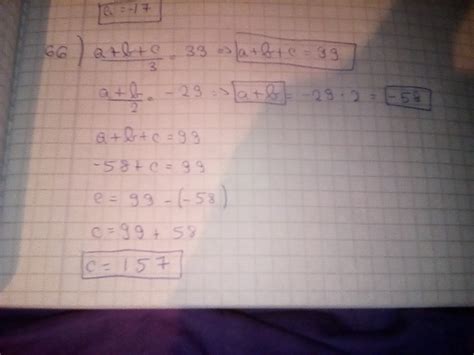 a = -17
66) a+b+c/3 = 33 => a+b+c = 99
a+b/2 = -29 => a+b = -29 · 2 = -58
a+b+c = 99
-58+c = 99
c = 99 - (-58)
c = 99 + 58
c = 157